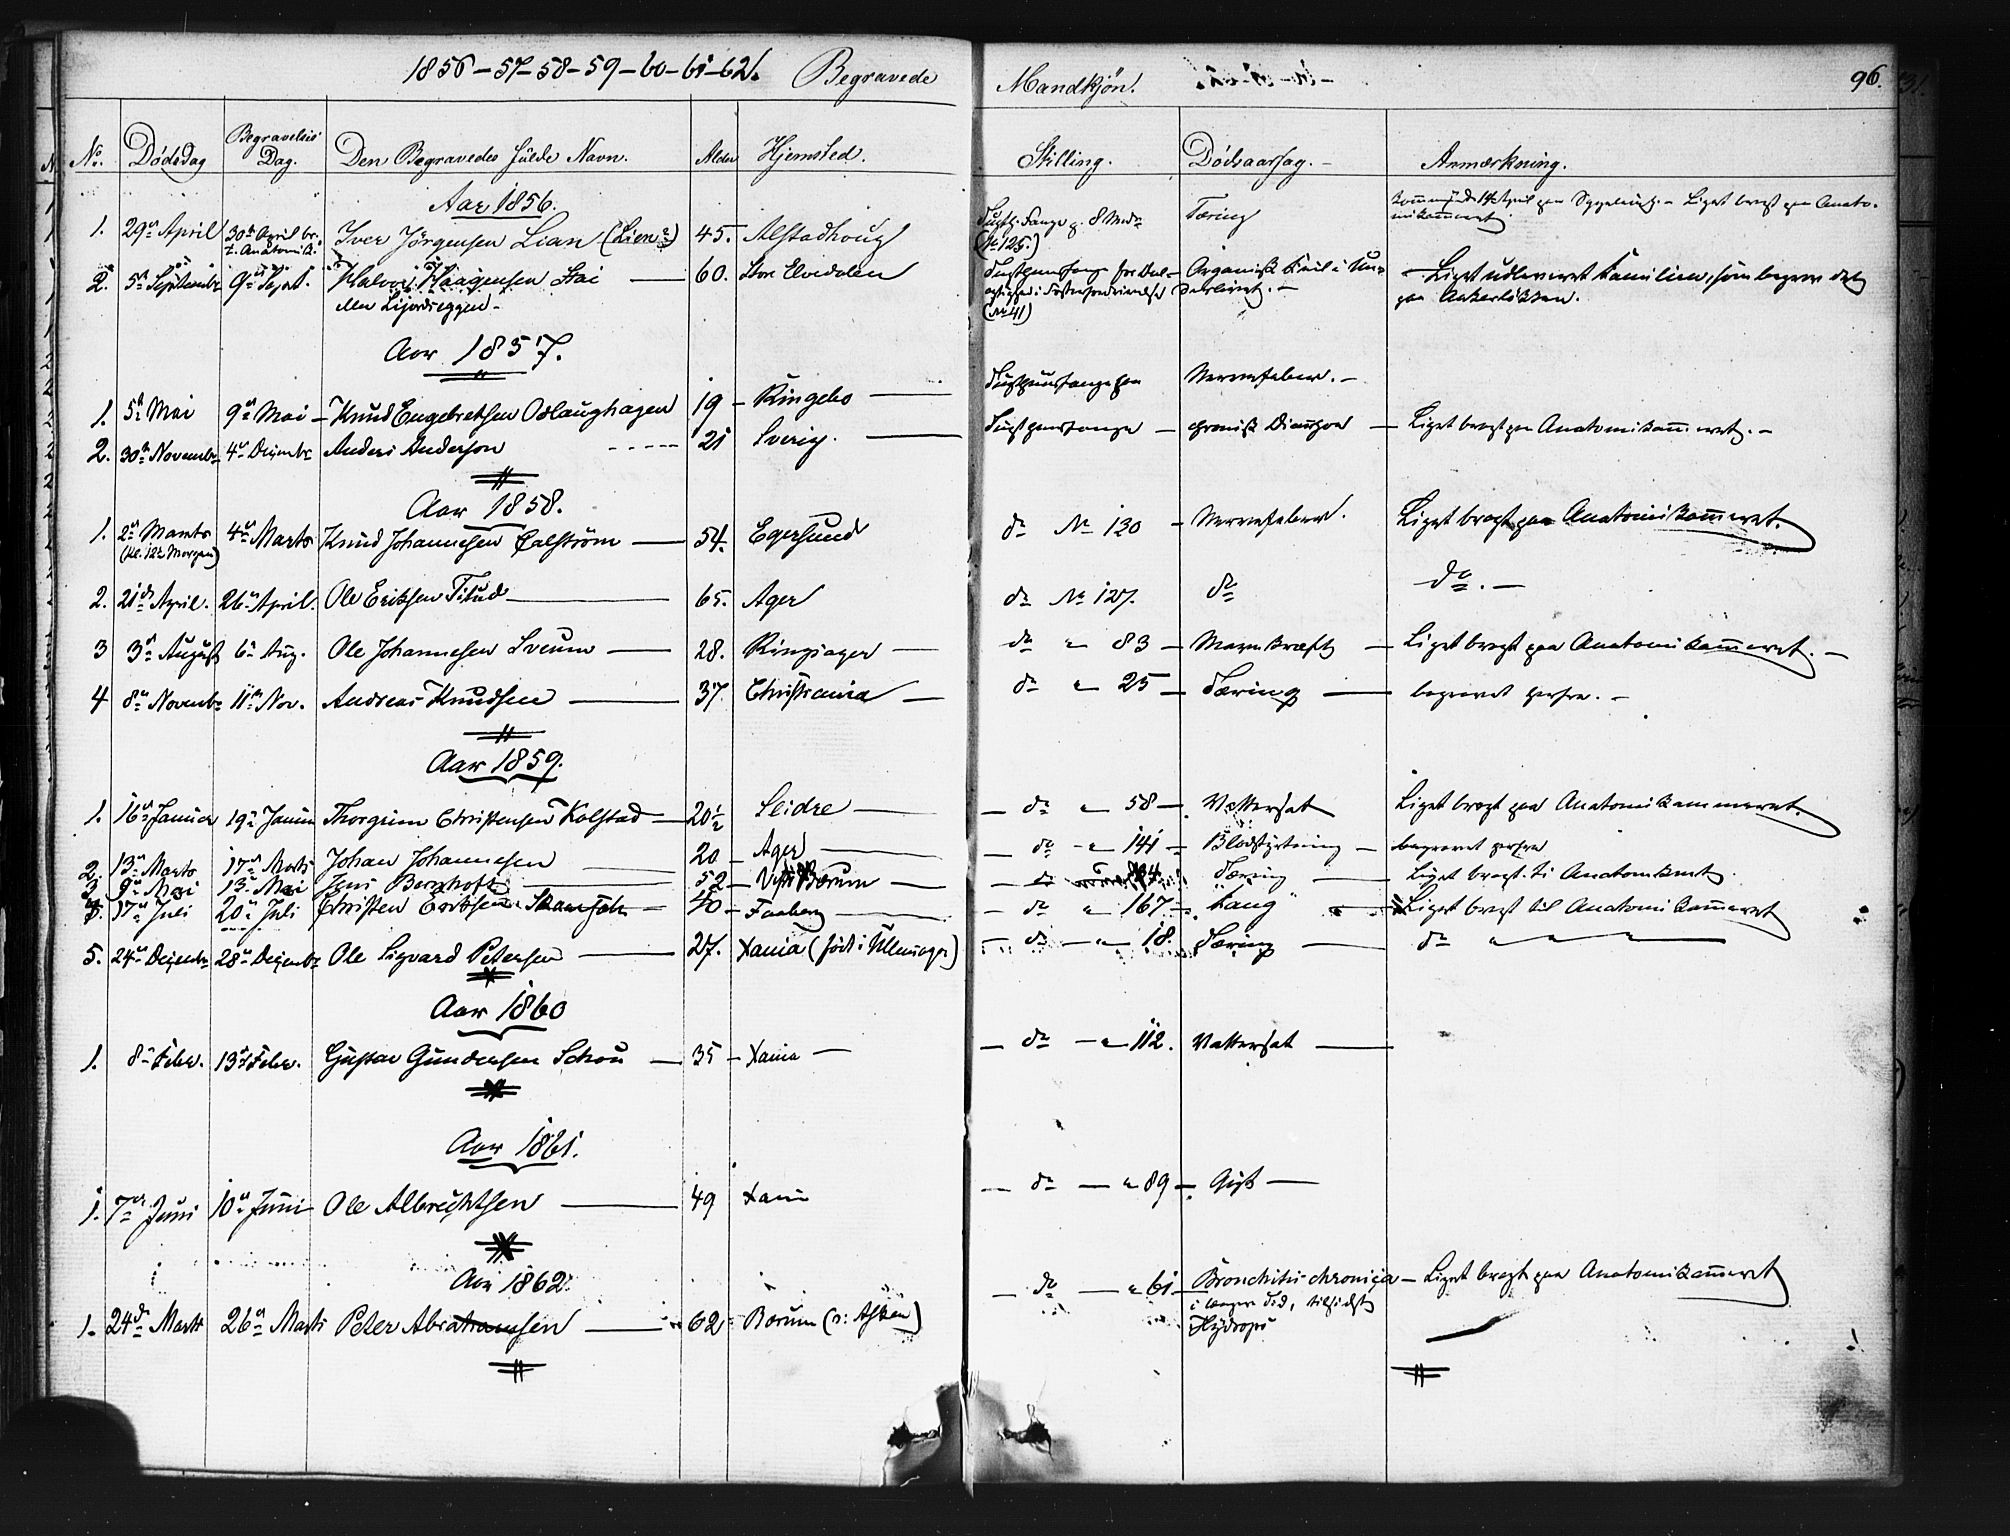 1856-57-58-59-60-61-62. Begravede Mandkjön. 96.
No. Dödsdag Begravelses Dag. Den Begravedes fulde Navn. Alder Hjemsted. Stilling. Dödsaarsag. Anmærkning.
Aar 1856.
1. 29de April 30te April Iver Jörgensen Lian (Lien?) 45. Alstadhoug Tæring
(No 125.)
2. 5te Septembr 9de Sept. Halvor Haagensen Stai 60. Store Elvedalen Liget udleveret Familien, som begrov det
eller Lijordeggen paa Ankerløkken.
(No 41)
Aar 1857.
1. 5te Mai 9de Mai Knud Engebretsen Oslaughagen 19 Ringebo Tugthusfange Nervefeber.
2. 30te Novembr 4de Decembr Anders Anderson 21 Sverig. Tugthusfange chronisk Diarrhoe Liget bragt paa Anatomikammeret.
Aar 1858.
1. 2den Marts 4de Marts Knud Johannesen 54. Egersund do No 130 Nervefeber. Liget bragt paa Anatomikammeret.
(Kl. 12½ Morgen)
2. 21de April. 26de April. Ole Eriksen 65. Ager do No 127. do do.
3 3die August 6te Aug. Ole Johannesen Sveum 28. Ringsager do " 83 Liget bragt paa Anatomikammeret.
4 8de Novembr 11te Nov. Andreas Knudsen 37. Christiania do " 25 Tæring begravet herfra.
Aar 1859.
1. 16de Januar 19de Januar Thorgrim Christensen Kolstad 20½ Slidre do " 58 Vattersot Liget bragt paa Anatomikammeret.
2. 13de Marts 17de Marts Johan Johannesen 20 Ager do " 141 Blodstyrtning begravet herfra
3 9de Mai 13de Mai Jens Bernhoft 52 Bærum do Tæring Liget bragt til Anatomkmt.
4. 17de Juli 20de Juli Christen Eriksen 40 Faaberg do " 167 Liget bragt til Anatomikammeret
5. 24de Decembr 28de Decembr Ole Sigvard Petersen 27. Xania (född i Ullensager) do " 18. Tæring do " " " "
Aar 1860
1. 8de Febr. 13de Febr. Gustav Gundersen Schou 35 Xania do " 112. Vattersot
Aar 1861.
1. 7de Juni 10de Juni Ole Albrechtsen 49 Xania do " 89 Gigt
Aar 1862.
1. 24de Marts 26de Marts Peter Abrahamsen 62 Bærum (o: Asker) do " 61 Bronchitis chronica Liget bragt paa Anatomikammeret
i længere Tid, tilsidst
Hydrops